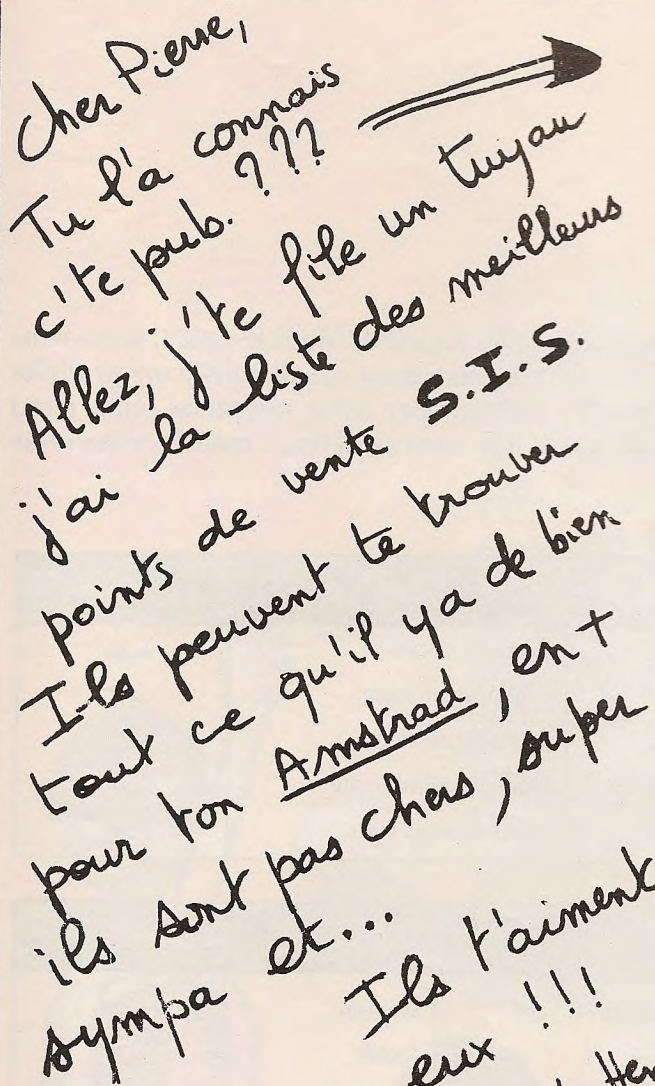 Cher Pierre,
Tu l'a connais
c'te pub. ???
Allez, j'te file un tuyau
j'ai la liste des meilleurs
points de vente S.I.S.
Ils peuvent te trouver
tout ce qu'il y a de bien
pour ton Amstrad, en +
ils sont pas chers, super
sympa et...
Ils t'aiment
eux !!!